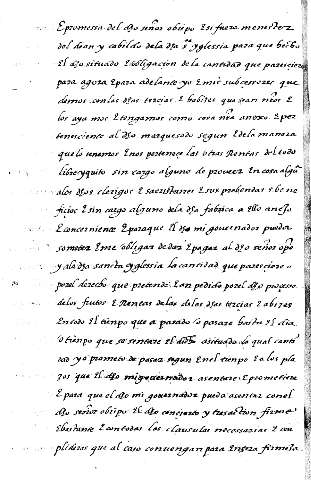 E promessa del dho señor obispo E si fuera menester
del dean y cabildo de la dha sta yglessia para que Reciba
El dho situado E obligacion de la cantidad que pareciere
para agora E para adelante yo E mis subcessores que
demos con las dhas tercias E hobites que sean nros E
los ayamos E tengamos como cosa nra anexa E per
tenesciente al dho marquesado segun E de la manera
que lo tenemos E nos pertenece las otras Rentas del todo
libre y quito sin cargo alguno de proveer En cosa algua
a los dhos clerigos E sacristanes E sus probendas E be ne
ficios E sin cargo alguno de la dha fabrica a Ello anejo
E concerniente E para que El dho mi governador pueda
someterme E me obligar de dar E pagar al dho señor opo
y a la dha sancta yglessia la cantidad que paresciere
por el derecho que pretende E an pedido por el dho processo
de los frutos E Rentas de las de las dhas tercias E abizes
En todo El tienpo que a pasado E pasare hasta El dia
o tienpo que se sentare El dicho asituado lo qual canti
dad yo prometo de pagar segun E en el tienpo E a los pla
zos que El dho mi governador asentare E prometiere
E para que el dho mi governador pueda asentar con el
dho señor obispo El dho concierto y transaction firme
E bastante E con todas las clausulas necessarias E con
plideras que al caso convengan para Entera firmeza